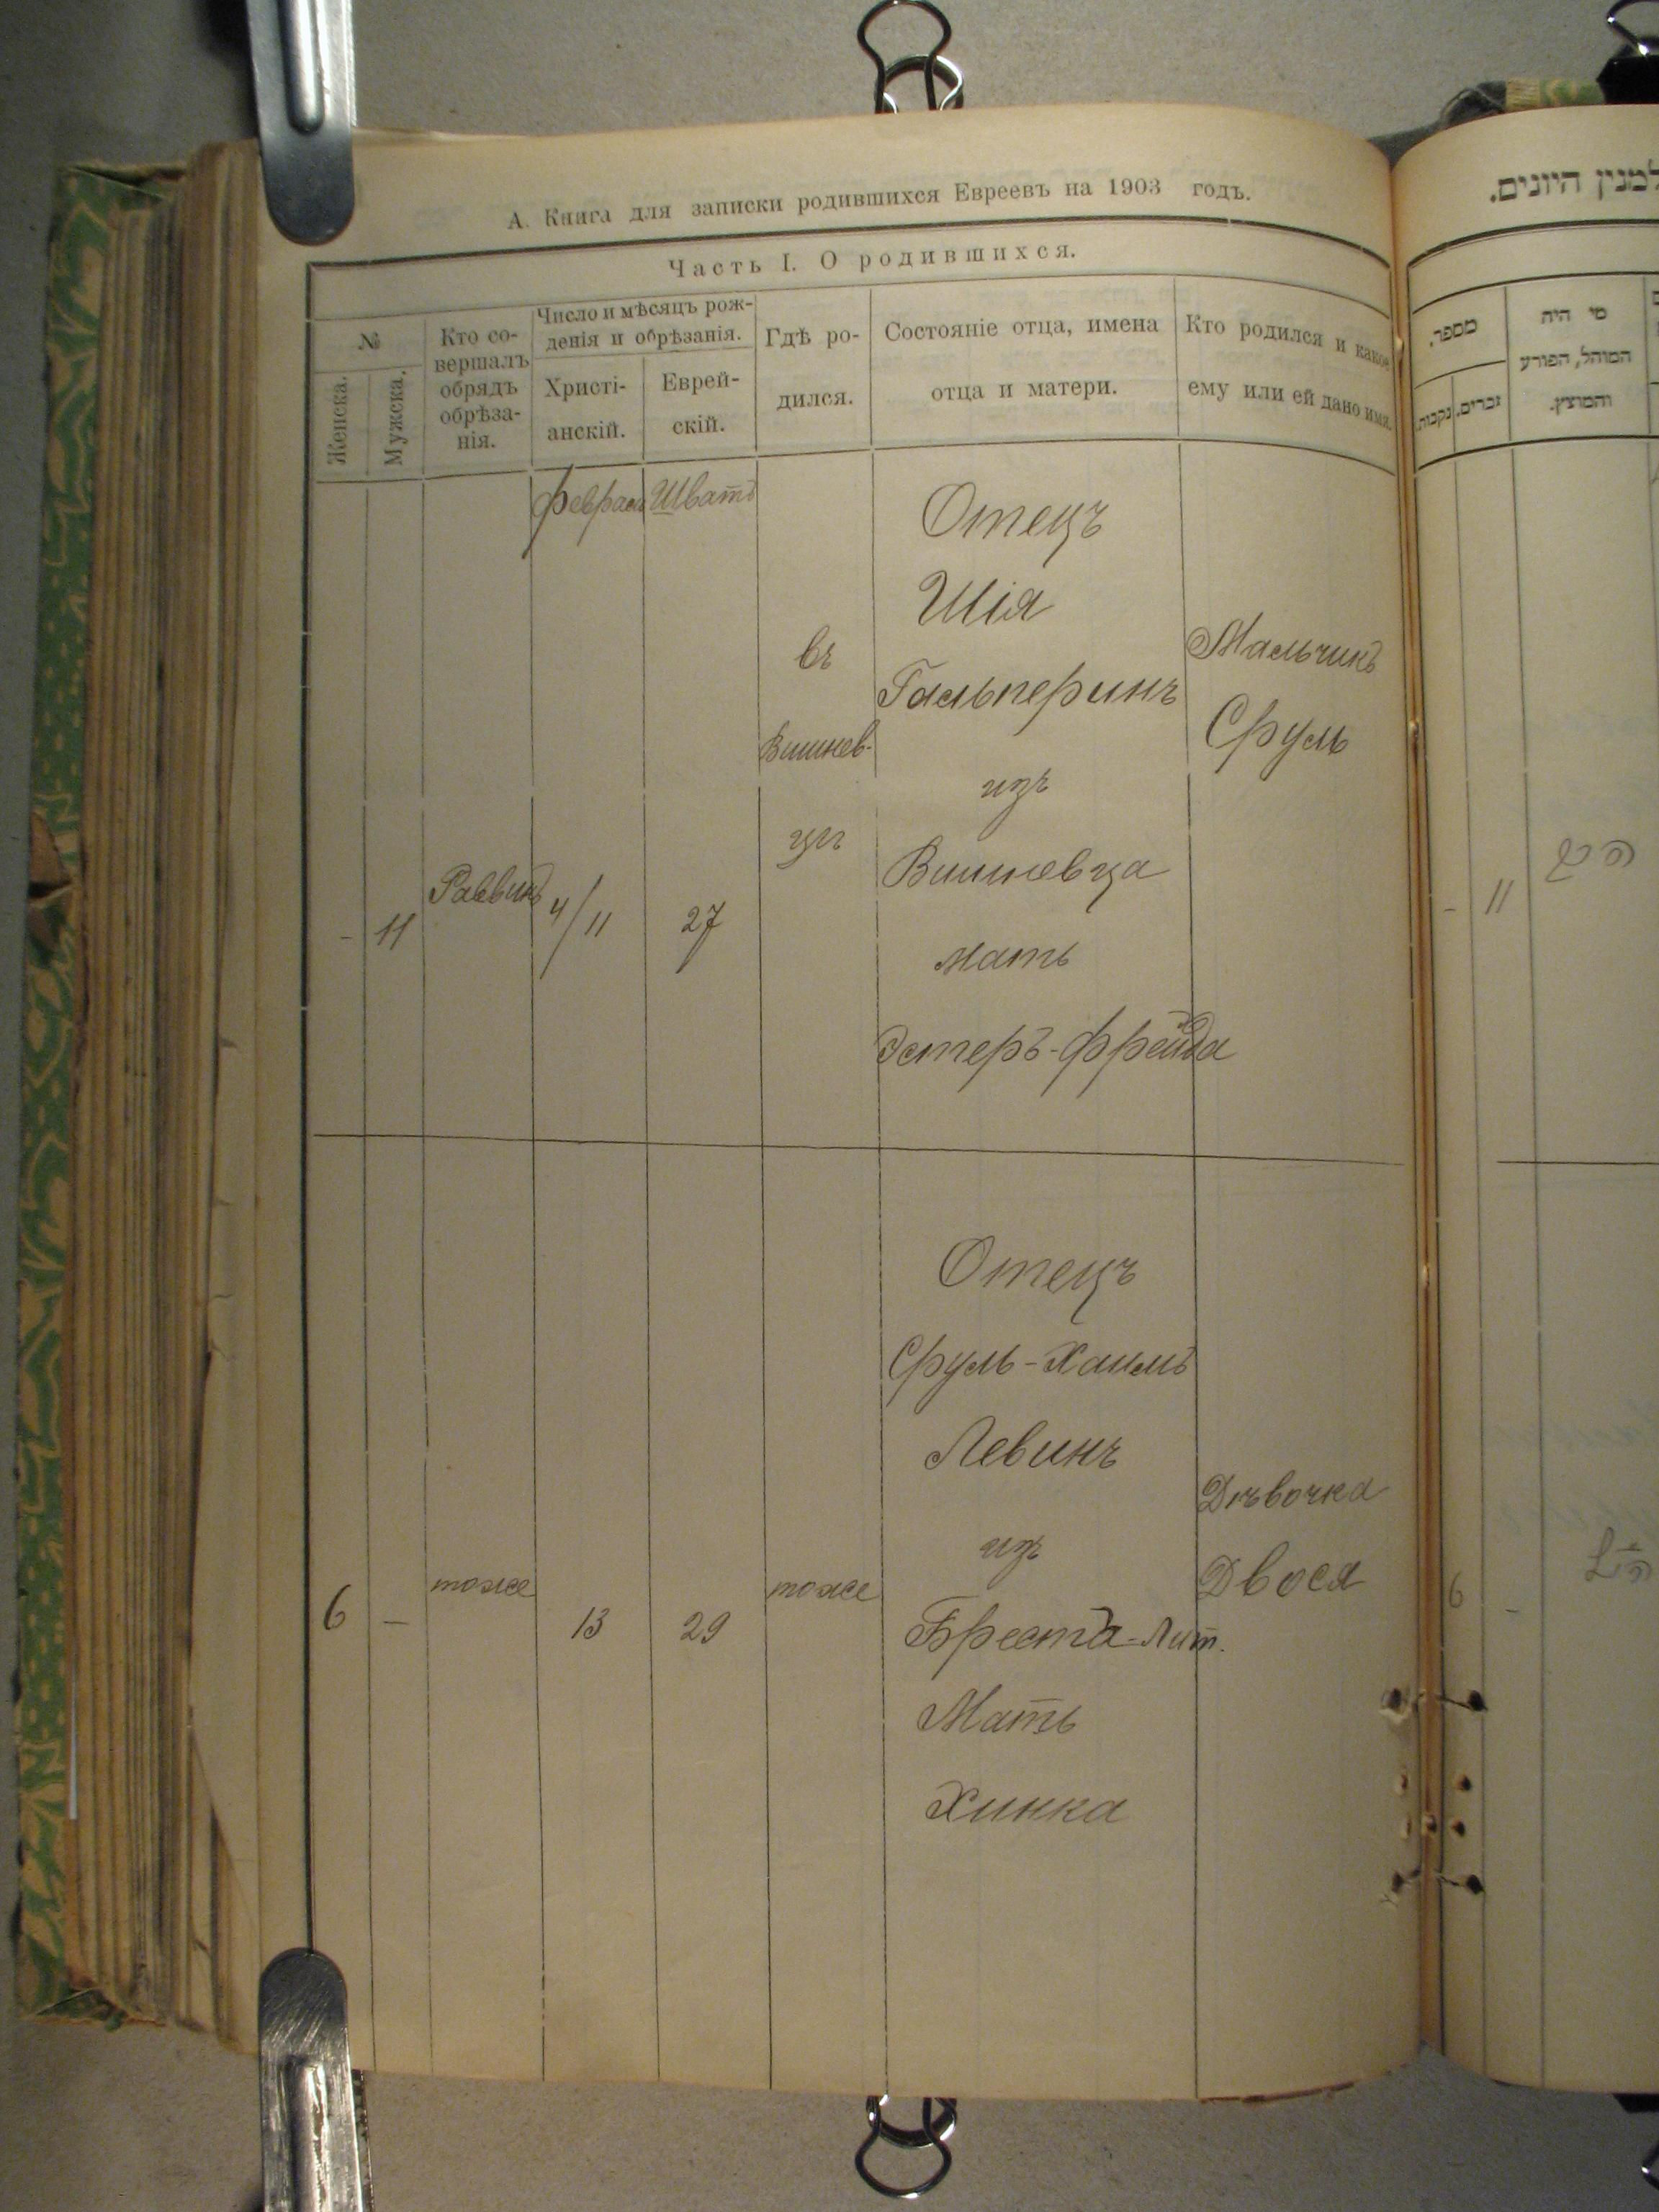 А. Книга для записки родившихся Евреевъ на 1903 годъ.
Часть I. О родившихся.
№
Женска.
Мужска.
Кто со-
вершалъ
обрядъ
обрѣза-
нія.
Число и мѣсяцъ рож-
денія и обрѣзанія.
Христі-
анскій.
Еврей-
скій.
Гдѣ ро-
дился.
Состояніе отца, имена
отца и матери.
Кто родился и какое
ему или ей дано имя.
Шватъ
- 11
Раввинъ
4/11
27
въ
Вишнев-
цѣ
Отецъ
Шія
Гальперинъ
изъ
Вишневца
мать
Эстеръ-Фрейда
Мальчикъ
Сруль
6 -
тоже
13
29
тоже
Отецъ
Сруль-Хаимъ
Левинъ
изъ
Бреста-Лит.
Мать
Хинка
Дѣвочка
Двося
למנין היונים.
מספר.
נקבות.
זכרים.
מי היה
המוהל, הפורע
והמוצץ.
- 11
6 -